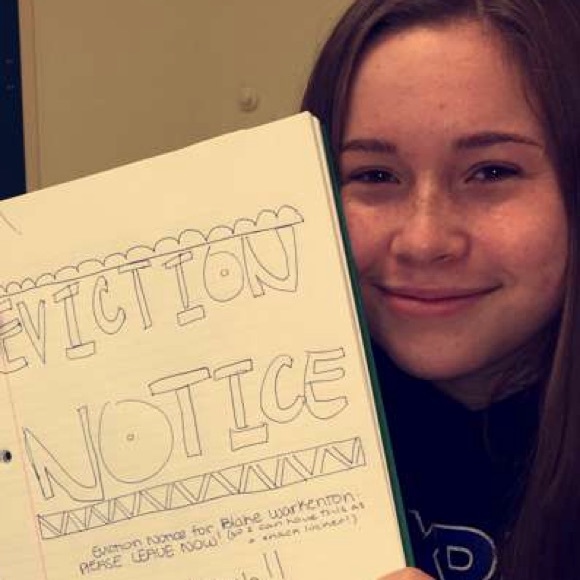 EVICTION
NOTICE
Eviction Notice for Blake Warkenton.
PLEASE LEAVE NOW! (so I can have this as
a snack locker!)